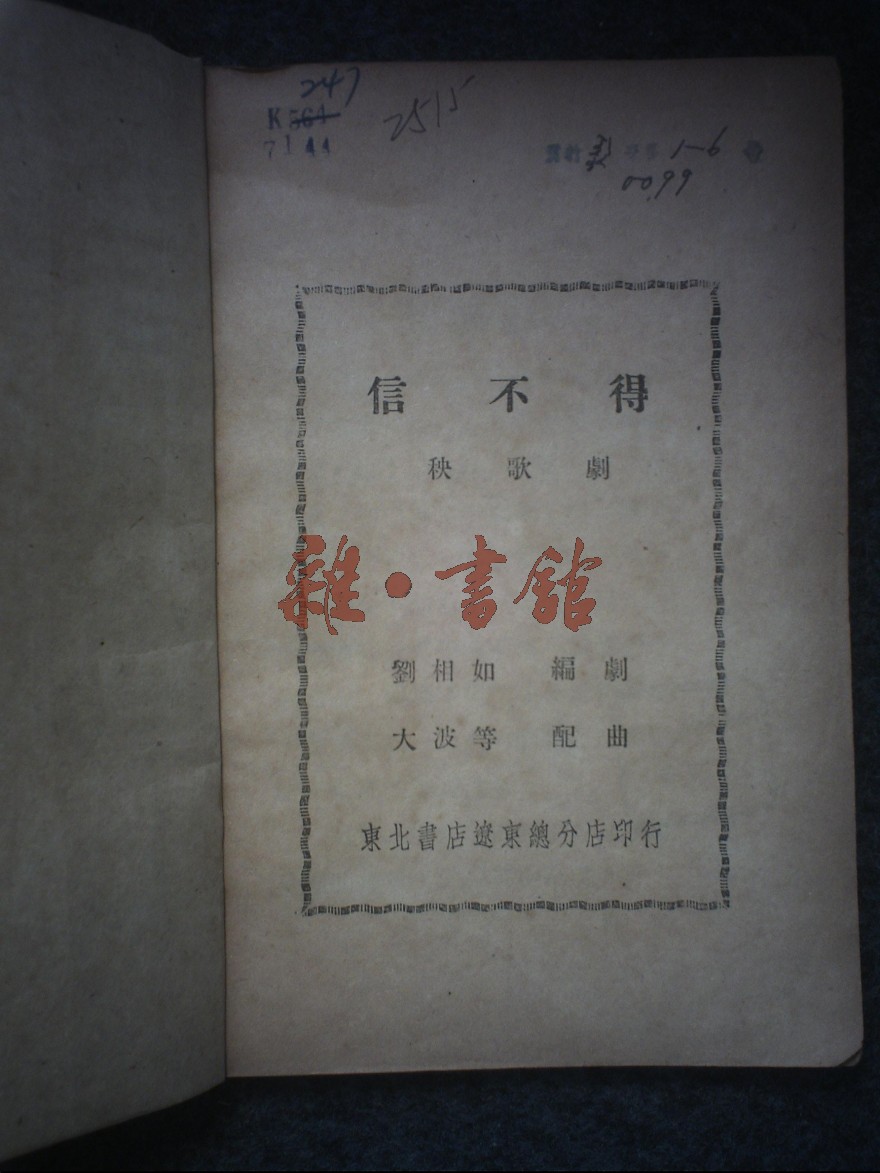 247
K 564
7144
2515
1-6
0099
信不得
秧歌劇
雜·書館
劉相如 編劇
大波等 配曲
東北書店遼東總分店印行